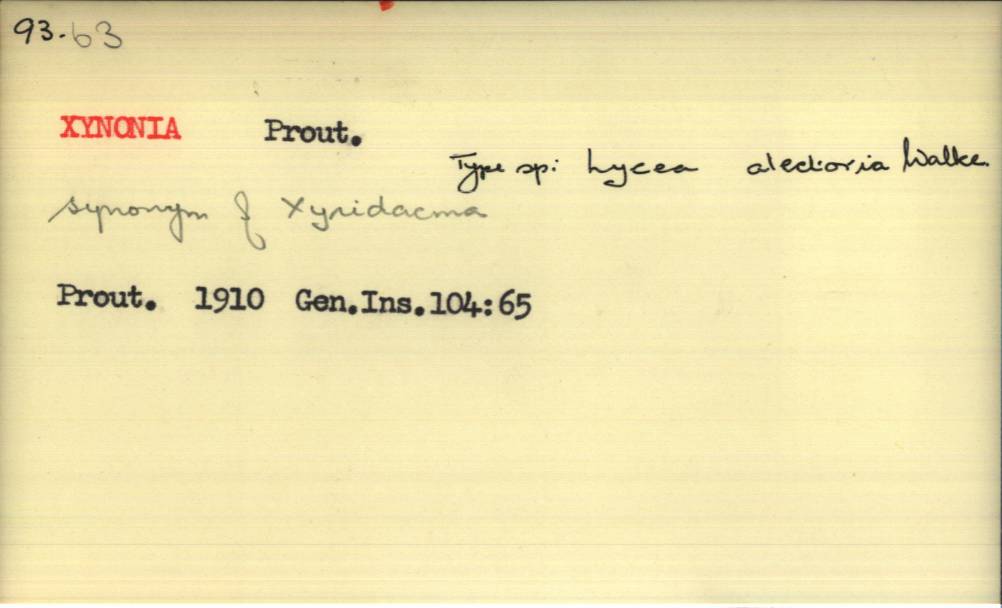 93.63
XYNONIA Prout.
Type sp: Lycea alectoria Walke.
synonym of Xyridacma
Prout. 1910 Gen.Ins.104:65